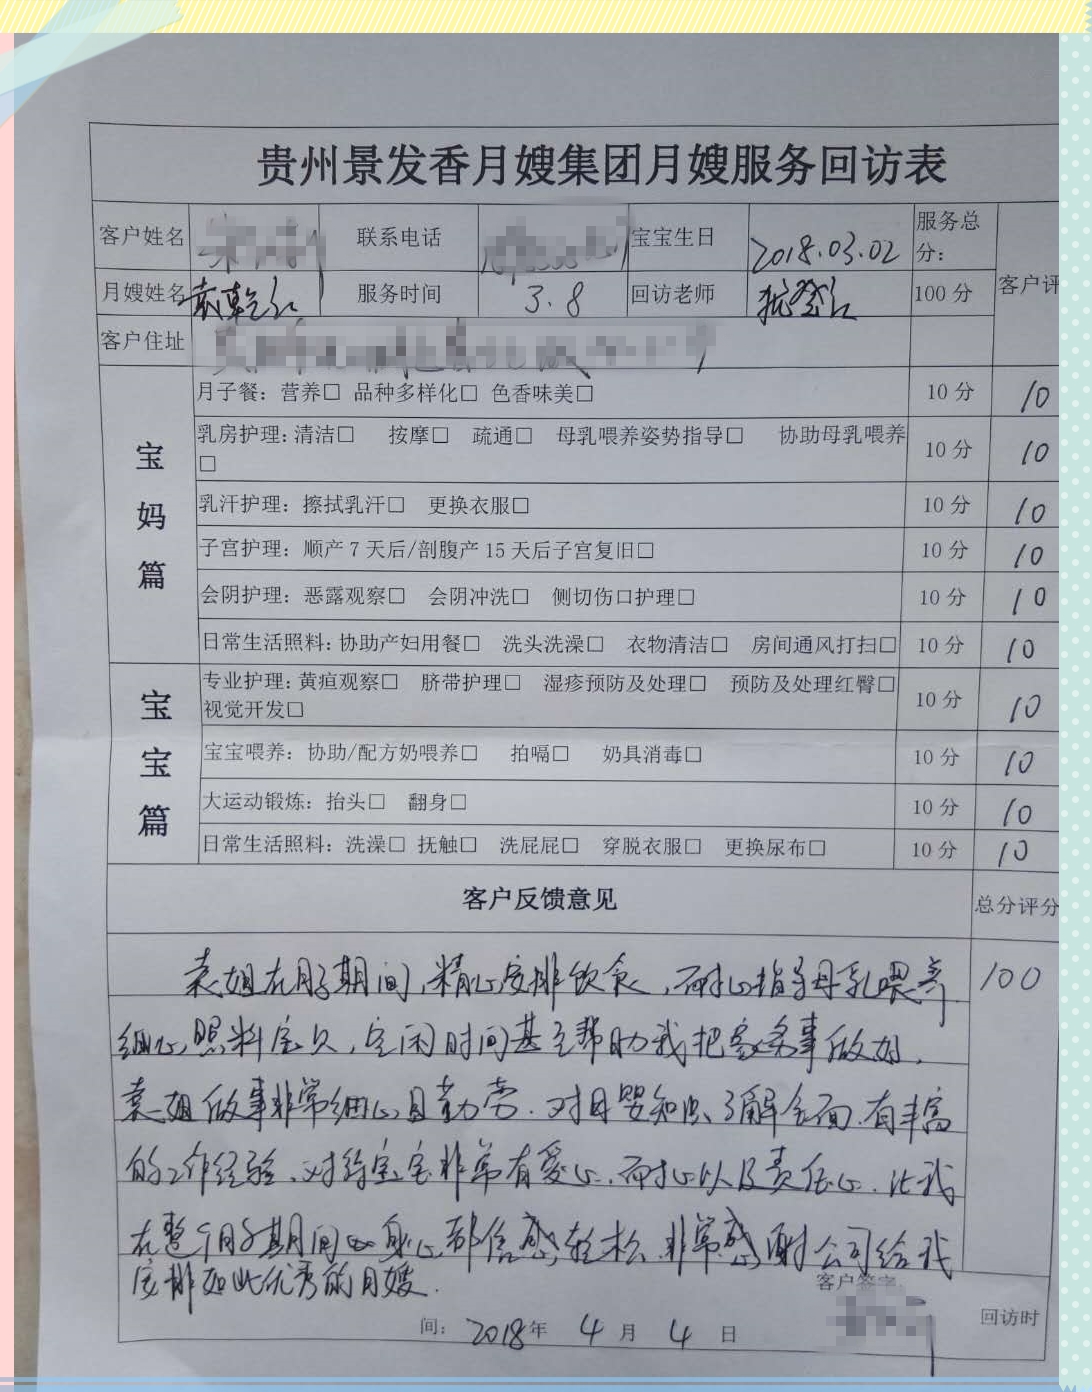 贵州景发香月嫂集团月嫂服务回访表
客户姓名 联系电话 宝宝生日 2018.03.02 服务总分: 客户评
月嫂姓名 袁乾红 服务时间 3.8 回访老师 100分
客户住址
宝妈篇
月子餐：营养□ 品种多样化□ 色香味美□ 10分 10
乳房护理：清洁□ 按摩□ 疏通□ 母乳喂养姿势指导□ 协助母乳喂养
□ 10分 10
乳汗护理：擦拭乳汗□ 更换衣服□ 10分 10
子宫护理：顺产7天后/剖腹产15天后子宫复旧□ 10分 10
会阴护理：恶露观察□ 会阴冲洗□ 侧切伤口护理□ 10分 10
日常生活照料：协助产妇用餐□ 洗头洗澡□ 衣物清洁□ 房间通风打扫□ 10分 10
宝宝篇
专业护理：黄疸观察□ 脐带护理□ 湿疹预防及处理□ 预防及处理红臀□
视觉开发□ 10分 10
宝宝喂养：协助/配方奶喂养□ 拍嗝□ 奶具消毒□ 10分 10
大运动锻炼：抬头□ 翻身□ 10分 10
日常生活照料：洗澡□ 抚触□ 洗屁屁□ 穿脱衣服□ 更换尿布□ 10分 10
客户反馈意见 总分评分
袁姐在月子期间,精心安排饮食,耐心指导母乳喂养 100
细心照料宝贝,空闲时间甚至帮助我把家务事做好.
袁姐做事非常细心且勤劳.对母婴知识了解全面.有丰富
的工作经验、对待宝宝非常有爱心.耐心以及责任心.让我
在整个月子期间身心都倍感轻松.非常感谢公司给我
安排如此优秀的月嫂.
客户签字
间：2018年 4月 4日 回访时